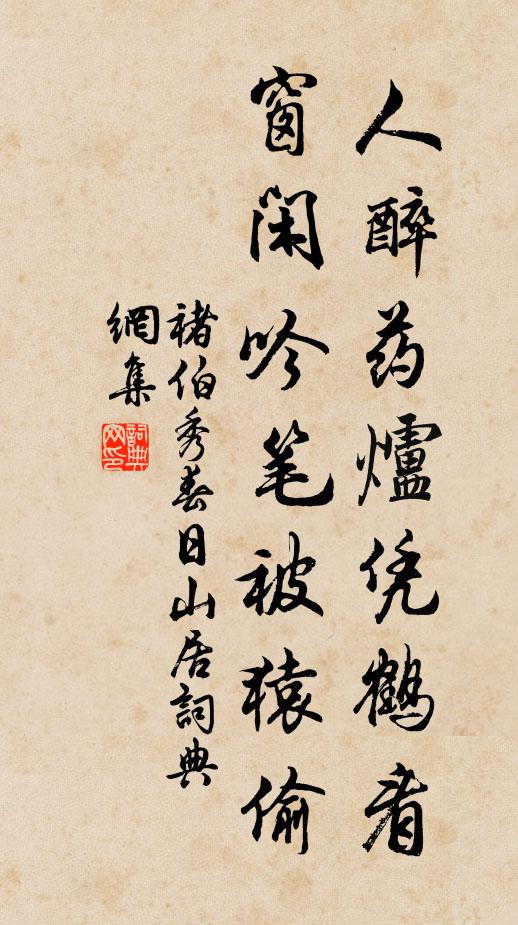 人醉药爐凭鹤看
窗闲吟笔被猿偷
褚伯秀春日山居詞典
網集
詞典網印